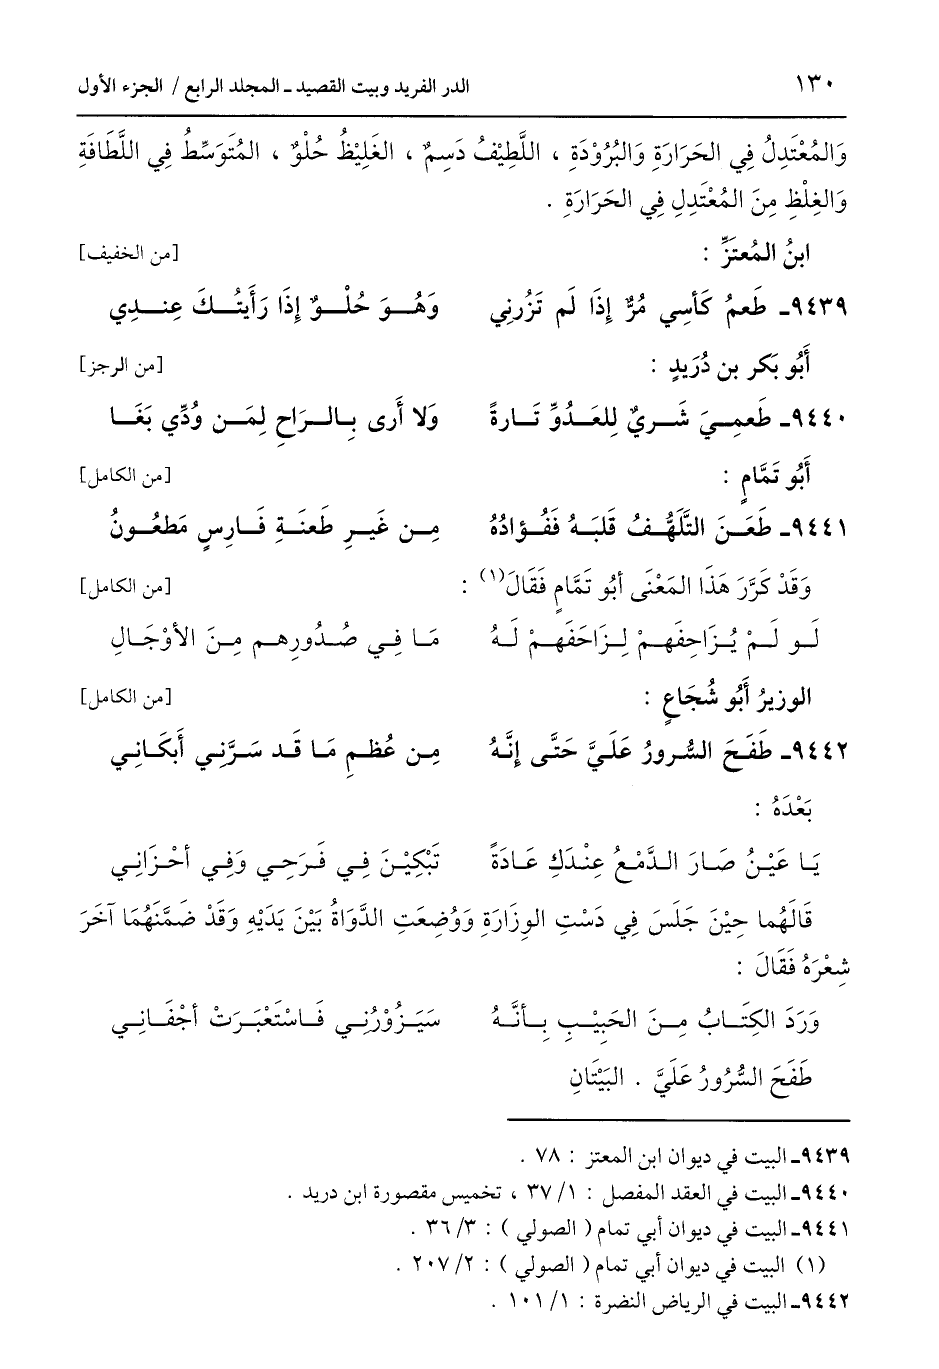 ١٣٠ الدر الفريد وبيت القصيد ـ المجلد الرابع / الجزء الأول
وَالمُعْتَدِلُ فِي الحَرَارَةِ وَالبُرُوْدَةِ ، اللَّطِيْفُ دَسِمٌ ، الغَلِيْظُ حُلْوٌ ، المُتَوَسِّطُ فِي اللَّطَافَةِ
وَالغِلْظِ مِنَ المُعْتَدِلِ فِي الحَرَارَةِ .
ابنُ المُعتَزِّ : [من الخفيف]
٩٤٣٩ـ طَعمُ كَأسِي مُرٌّ إذَا لَم تَزُرنِي وَهُوَ حُلْوٌ إذَا رَأَيتُكَ عِندِي
أَبُو بَكر بن دُرَيدٍ : [من الرجز]
٩٤٤٠ـ طَعمِيَ شَريٌ لِلعَدُوِّ تَارةً وَلا أَرى بِالرَاحِ لِمَن وُدِّي بَغَا
أَبُو تَمَّامٍ : [من الكامل]
٩٤٤١ـ طَعَنَ التَّلَهُّفُ قَلبَهُ فَفُؤادُهُ مِن غَيرِ طَعنَةِ فَارِسٍ مَطعُونُ
وَقَدْ كَرَّرَ هَذَا المَعْنَى أبُو تَمَّامٍ فَقَالَ(١) : [من الكامل]
لَو لَمْ يُزَاحِفَهمْ لِزَاحَفَهمْ لَهُ مَا فِي صُدُورِهم مِنَ الأوْجَالِ
الوزيرُ أَبُو شُجَاعٍ : [من الكامل]
٩٤٤٢ـ طَفَحَ السُّرورُ عَلَيَّ حَتَّى إنَّهُ مِن عُظمِ مَا قَد سَرَّنِي أَبكَانِي
بَعْدَهُ :
يَا عَيْنُ صَارَ الدَّمْعُ عِنْدَكِ عَادَةً تَبْكِيْنَ فِي فَرَحِي وَفِي أحْزَانِي
قَالَهُما حِيْنَ جَلَسَ فِي دَسْتِ الوِزَارَةِ وَوُضِعَتِ الدَّوَاةُ بَيْنَ يَدَيْهِ وَقَدْ ضَمَّنَهُمَا آخَرَ
شِعْرَهُ فَقَالَ :
وَرَدَ الكِتَابُ مِنَ الحَبِيْبِ بِأنَّهُ سَيَزُوْرُنِي فَاسْتَعْبَرَتْ أجْفَانِي
طَفَحَ السُّرُورُ عَلَيَّ . البَيْتَانِ
٩٤٣٩ـ البيت في ديوان ابن المعتز : ٧٨ .
٩٤٤٠ـ البيت في العقد المفصل : ١/ ٣٧ ، تخميس مقصورة ابن دريد .
٩٤٤١ـ البيت في ديوان أبي تمام ( الصولي ) : ٣/ ٣٦ .
(١) البيت في ديوان أبي تمام ( الصولي ) : ٢/ ٢٠٧ .
٩٤٤٢ـ البيت في الرياض النضرة : ١/ ١٠١ .